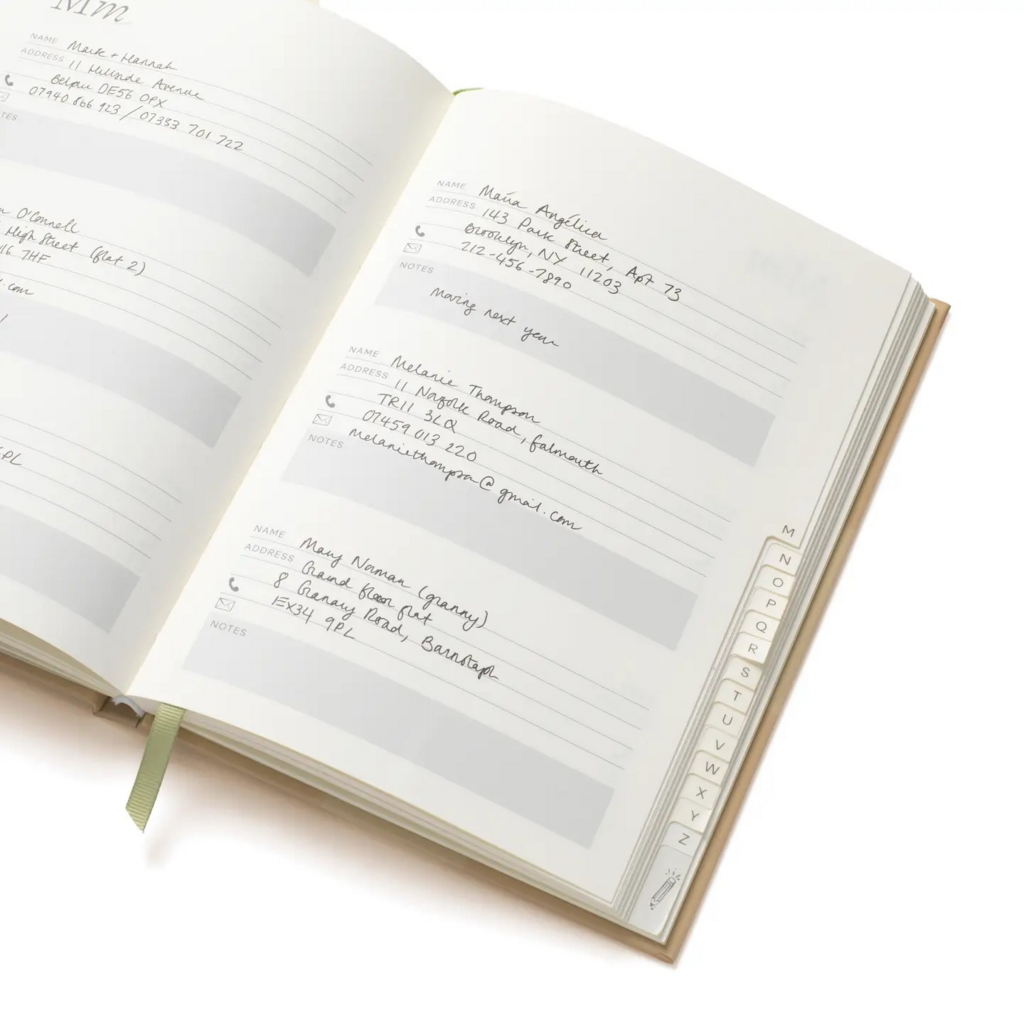 Mm
NAME Mark + Hannah
ADDRESS 11 Hillside Avenue
Belper DE56 0PX
07940 866 923 / 07333 701 722
O'Connell
High Street (flat 2)
7HF
.com
NAME María Angélica
ADDRESS 143 Park Street, Apt 73
Brooklyn, NY 11203
212-456-7890
NOTES
Moving next year
NAME Melanie Thompson
ADDRESS 11 Norfolk Road, falmouth
TR11 3LQ
07459 013 220
melaniethompson@gmail.com
NOTES
NAME Mary Norman (granny)
ADDRESS Ground floor flat
8 Granary Road, Barnstapl
EX34 9PL
NOTES
M
N
O
P
Q
R
S
T
U
V
W
X
Y
Z